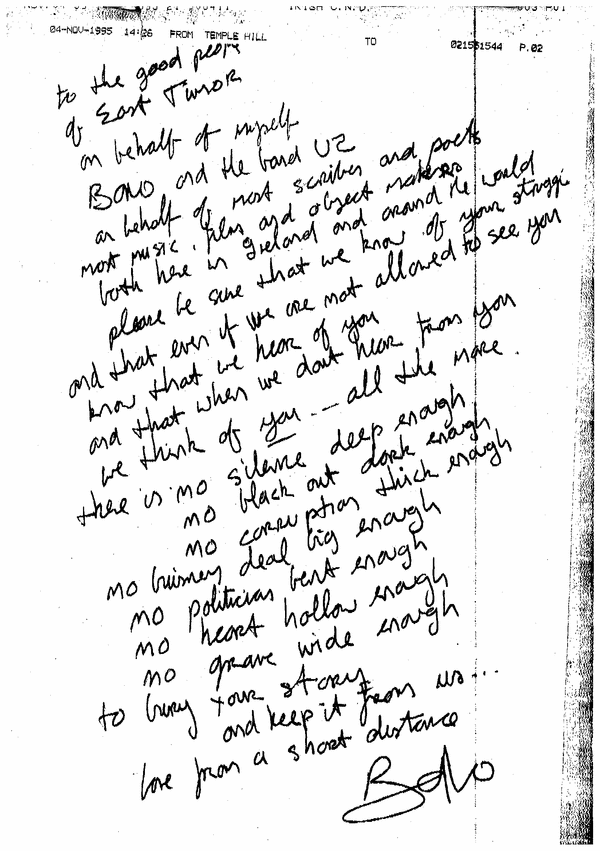 IRISH C.N.D.
04-NOV-1995 14:26 FROM TEMPLE HILL TO 021551544 P.02
to the good people
of East Timor
on behalf of myself
BONO and the band U2
on behalf of most scribes and poets
most music, film and object makers
both here in Ireland and around the world
please be sure that we know of your struggl
and that even if we are not allowed to see you
know that we hear of you
and that when we dont hear from you
we think of you --- all the more.
there is no silence deep enough
no black out dark enough
no corruption thick enough
no business deal big enough
no politician bent enough
no heart hollow enough
no grave wide enough
to bury your story
and keep it from us...
love from a short distance
Bono